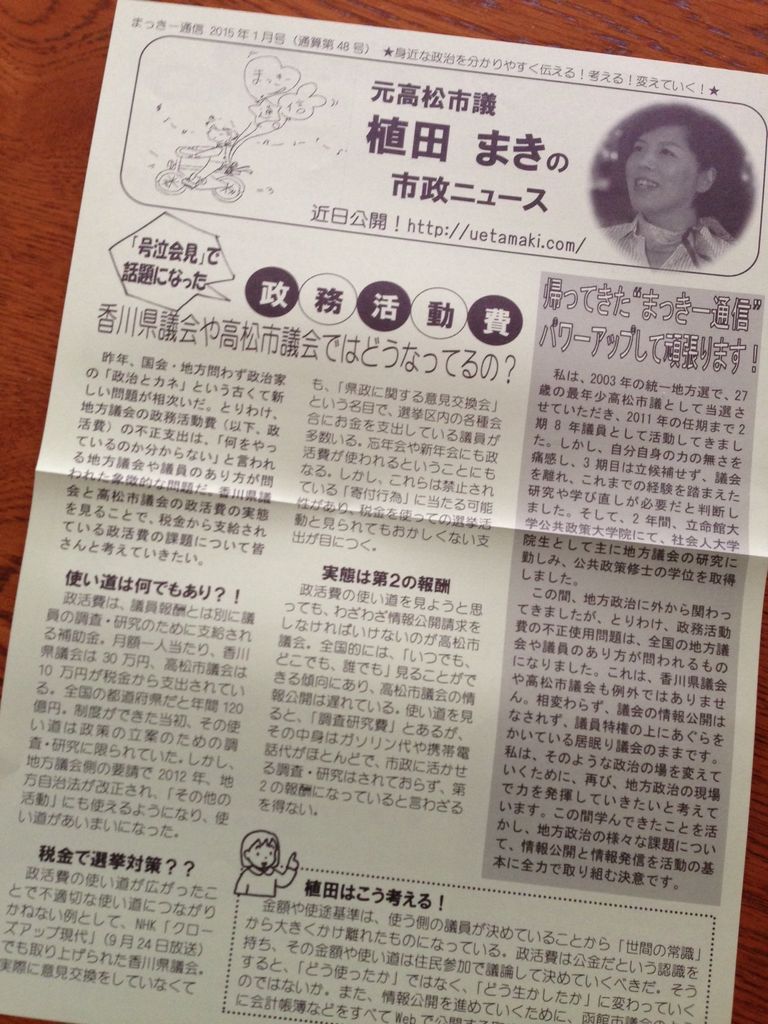 まっきー通信 2015年1月号（通算第48号） ★身近な政治を分かりやすく伝える！考える！変えていく！★
まっきー
通信
元高松市議
植田 まきの
市政ニュース
近日公開！http://uetamaki.com/
「号泣会見」で
話題になった
政務活動費
香川県議会や高松市議会ではどうなってるの？
昨年、国会・地方問わず政治家
の「政治とカネ」という古くて新
しい問題が相次いだ。とりわけ、
地方議会の政務活動費（以下、政
活費）の不正支出は、「何をやっ
ているのか分からない」と言われ
る地方議会や議員のあり方が問
われた象徴的な問題だ。香川県議
会と高松市議会の政活費の実態
を見ることで、税金から支給され
ている政活費の課題について皆
さんと考えていきたい。
使い道は何でもあり？！
政活費は、議員報酬とは別に議
員の調査・研究のために支給され
る補助金。月額一人当たり、香川
県議会は30万円、高松市議会は
10万円が税金から支出されてい
る。全国の都道府県だと年間120
億円。制度ができた当初、その使
い道は政策の立案のための調
査・研究に限られていた。しかし、
地方議会側の要請で2012年、地
方自治法が改正され、「その他の
活動」にも使えるようになり、使
い道があいまいになった。
税金で選挙対策？？
政活費の使い道が広がったこ
とで不適切な使い道につながり
かねない例として、NHK「クロー
ズアップ現代」（9月24日放送）
でも取り上げられた香川県議会。
実際に意見交換をしていなくて
も、「県政に関する意見交換会」
という名目で、選挙区内の各種会
合にお金を支出している議員が
多数いる。忘年会や新年会にも政
活費が使われるということにも
なる。しかし、これらは禁止され
ている「寄付行為」に当たる可能
性があり、税金を使っての選挙活
動と見られてもおかしくない支
出が目につく。
実態は第2の報酬
政活費の使い道を見ようと思
っても、わざわざ情報公開請求を
しなければいけないのが高松市
議会。全国的には、「いつでも、
どこでも、誰でも」見ることがで
きる傾向にあり、高松市議会の情
報公開は遅れている。使い道を見
ると、「調査研究費」とあるが、
その中身はガソリン代や携帯電
話代がほとんどで、市政に活かせ
る調査・研究はされておらず、第
2の報酬になっていると言わざる
を得ない。
帰ってきた“まっきー通信”
パワーアップして頑張ります！
私は、2003年の統一地方選で、27
歳の最年少高松市議として当選さ
せていただき、2011年の任期まで2
期8年議員として活動してきまし
た。しかし、自分自身の力の無さを
痛感し、3期目は立候補せず、議会
を離れ、これまでの経験を踏まえた
研究や学び直しが必要だと判断し
ました。そして、2年間、立命館大
学公共政策大学院にて、社会人大学
院生として主に地方議会の研究に
勤しみ、公共政策修士の学位を取得
しました。
この間、地方政治に外から関わっ
てきましたが、とりわけ、政務活動
費の不正使用問題は、全国の地方議
会や議員のあり方が問われるもの
になりました。これは、香川県議会
や高松市議会も例外ではありませ
ん。相変わらず、議会の情報公開は
なされず、議員特権の上にあぐらを
かいている居眠り議会のままです。
私は、そのような政治の場を変えて
いくために、再び、地方政治の現場
で力を発揮していきたいと考えて
います。この間学んできたことを活
かし、地方政治の様々な課題につい
て、情報公開と情報発信を活動の基
本に全力で取り組む決意です。
植田はこう考える！
金額や使途基準は、使う側の議員が決めていることから「世間の常識」
から大きくかけ離れたものになっている。政活費は公金だという認識を
持ち、その金額や使い道は住民参加で議論して決めていくべきだ。そう
すると、「どう使ったか」ではなく、「どう生かしたか」に変わっていく
のではないか。また、情報公開を進めていくために、函館市議会の
に会計帳簿などをすべてWebで公開する